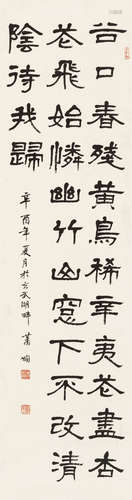 谷口春殘黃鳥稀辛夷花盡杏
花飛始憐幽竹山窗下不改清
陰待我歸
辛酉年夏月於玄武湖畔蕭嫻